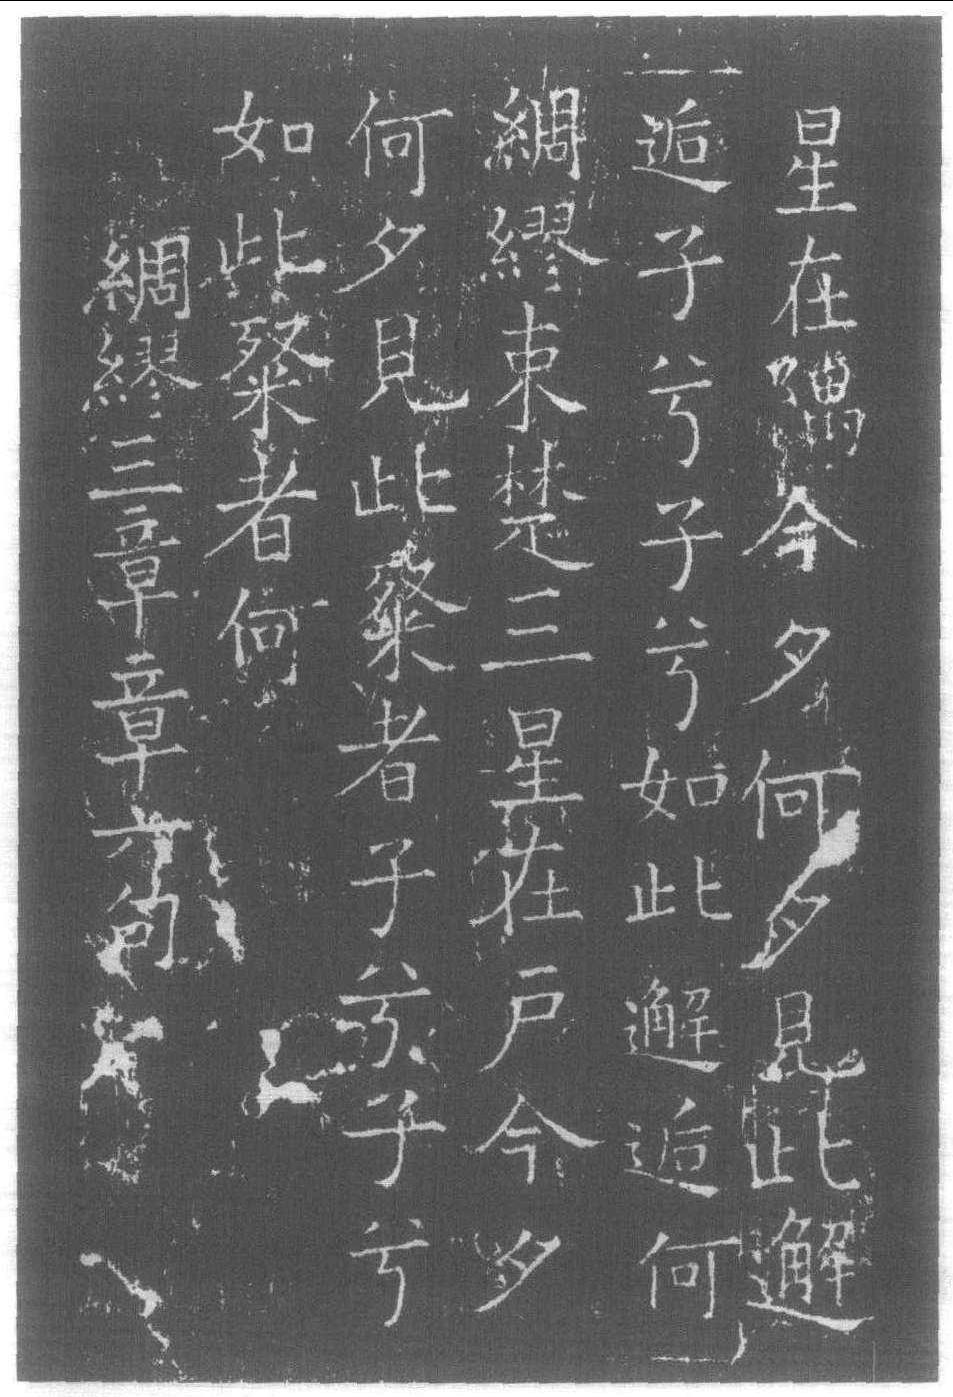 星在隅今夕何夕見此邂
逅子兮子兮如此邂逅何
綢繆束楚三星在戶今夕
何夕見此粲者子兮子兮
如此粲者何
綢繆三章章六句